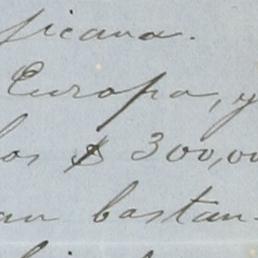 ficana.
Europa, y
los $ 300,00
an bastan-